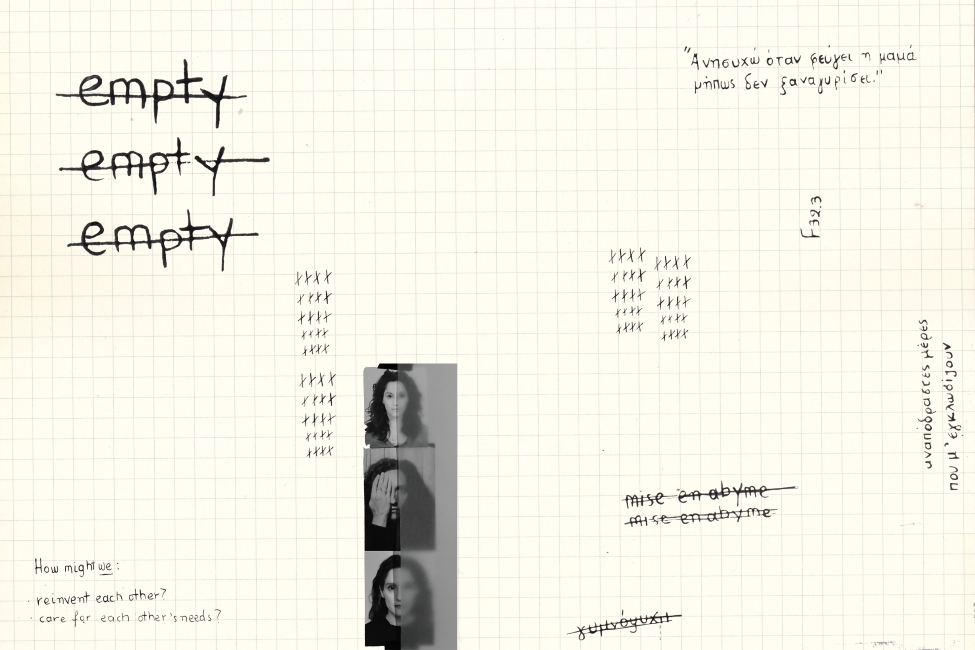 empty
empty
empty
"Ανησυχώ όταν φεύγει η μαμά
μήπως δεν ξαναγυρίσει."
F32.3
αναπόδραστες μέρες
που μ' εγκλωβίζουν
mise en abyme
mise en abyme
How might we:
· reinvent each other?
· care for each other's needs?